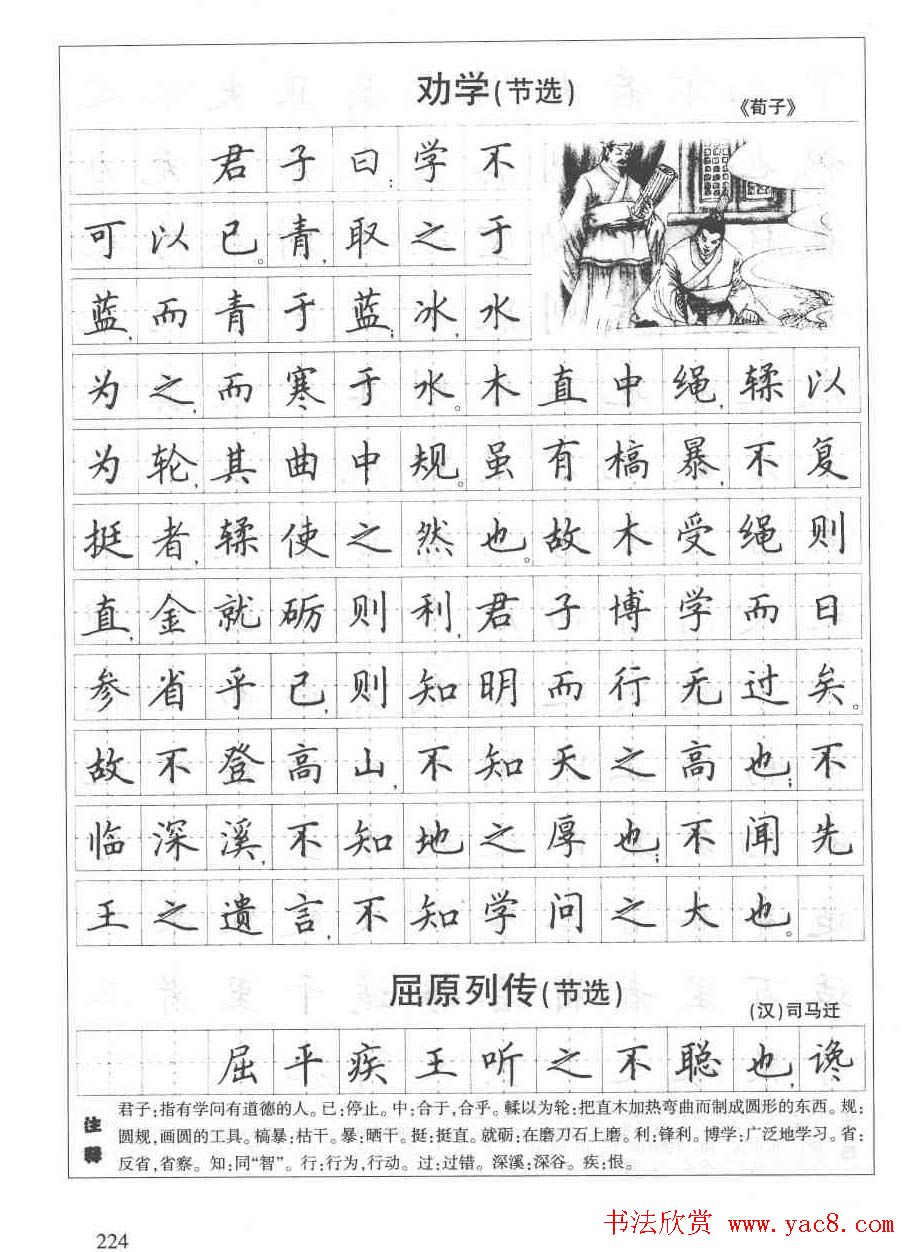 劝学(节选)
《荀子》
君子曰:学不
可以已。青,取之于
蓝,而青于蓝;冰,水
为之,而寒于水。木直中绳,𫐓以
为轮,其曲中规。虽有槁暴,不复
挺者,𫐓使之然也。故木受绳则
直,金就砺则利,君子博学而日
参省乎己,则知明而行无过矣。
故不登高山,不知天之高也;不
临深溪,不知地之厚也;不闻先
王之遗言,不知学问之大也。
屈原列传(节选)
(汉)司马迁
屈平疾王听之不聪也,谗
注释
君子:指有学问有道德的人。已:停止。中:合于,合乎。輮以为轮:把直木加热弯曲而制成圆形的东西。规:
圆规,画圆的工具。槁暴:枯干。暴:晒干。挺:挺直。就砺:在磨刀石上磨。利:锋利。博学:广泛地学习。省:
反省,省察。知:同“智”。行:行为,行动。过:过错。深溪:深谷。疾:恨。
224
书法欣赏 www.yac8.com